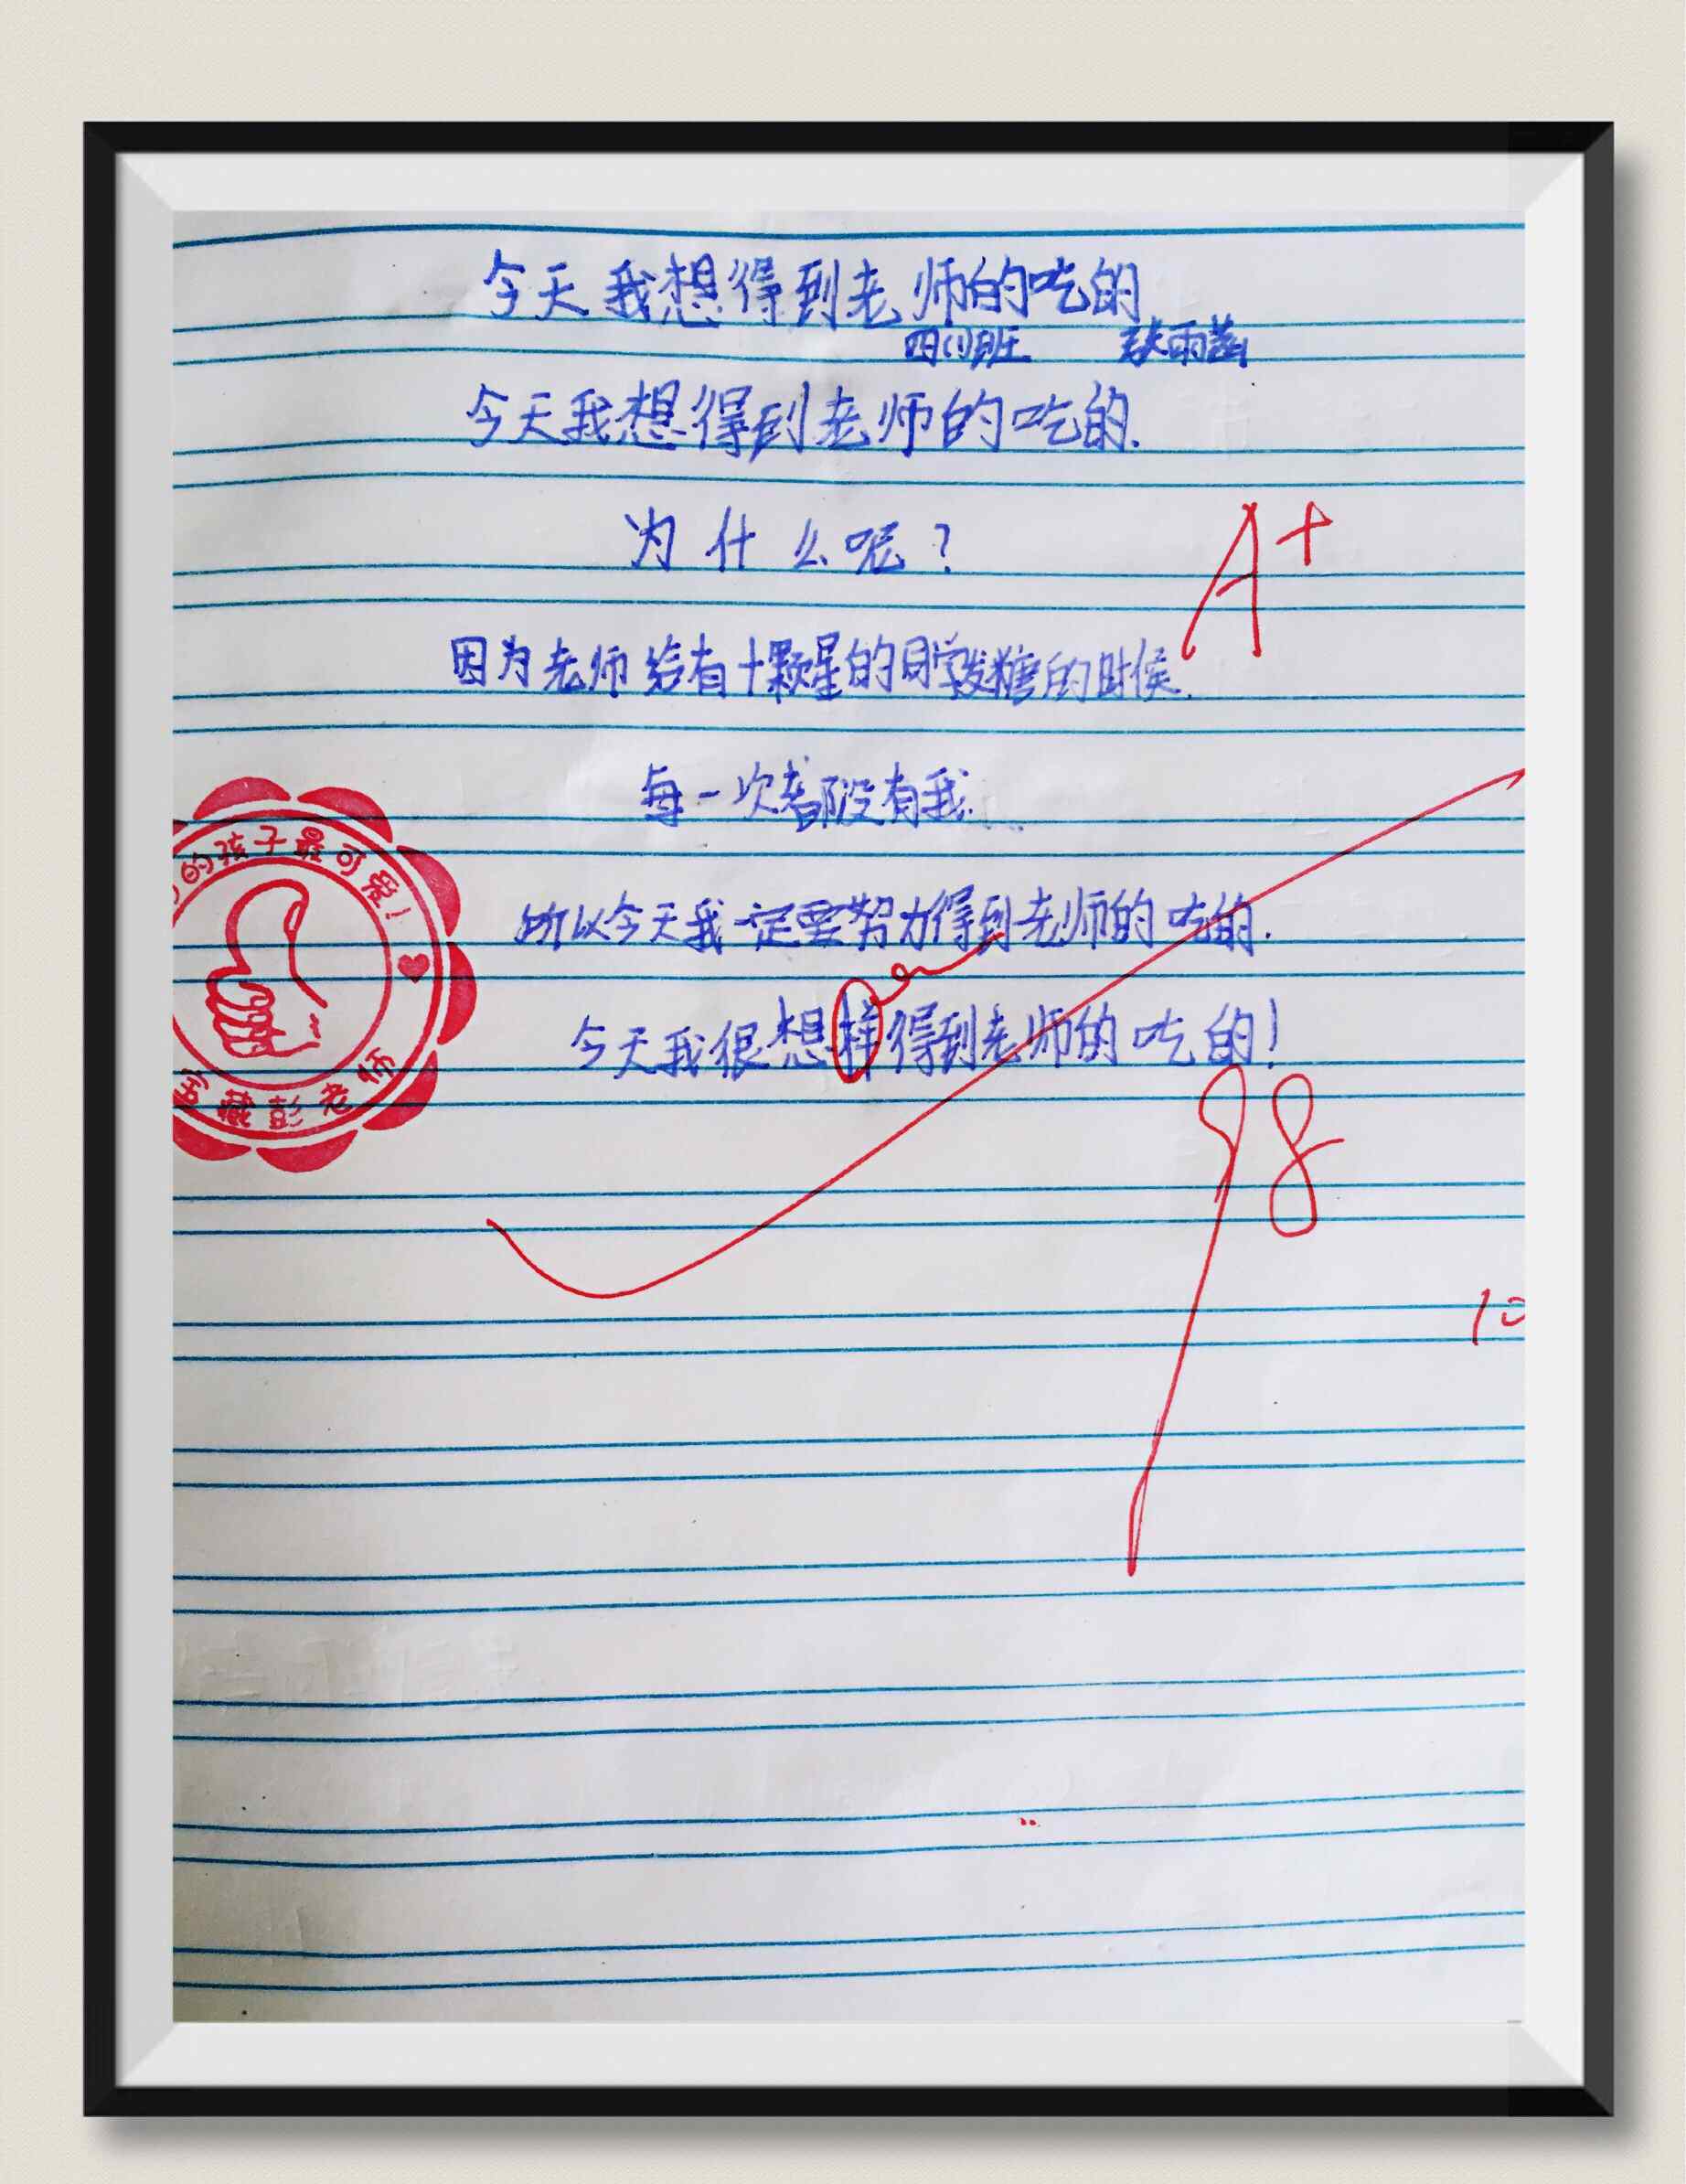 今天我想得到老师的吃的
四(1)班 张雨菡
今天我想得到老师的吃的.
为什么呢?
A+
因为老师给有十颗星的同学发糖的时候.
每一次都没有我.
所以今天我一定要努力得到老师的吃的.
今天我很想样得到老师的吃的!
98
10
的孩子最可爱!
宝藏彭老师